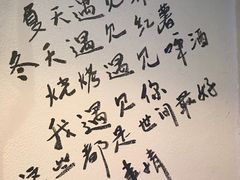 夏天遇见
冬天遇见红薯
烧烤遇见啤酒
我遇见你
这些都是世间最好
事情